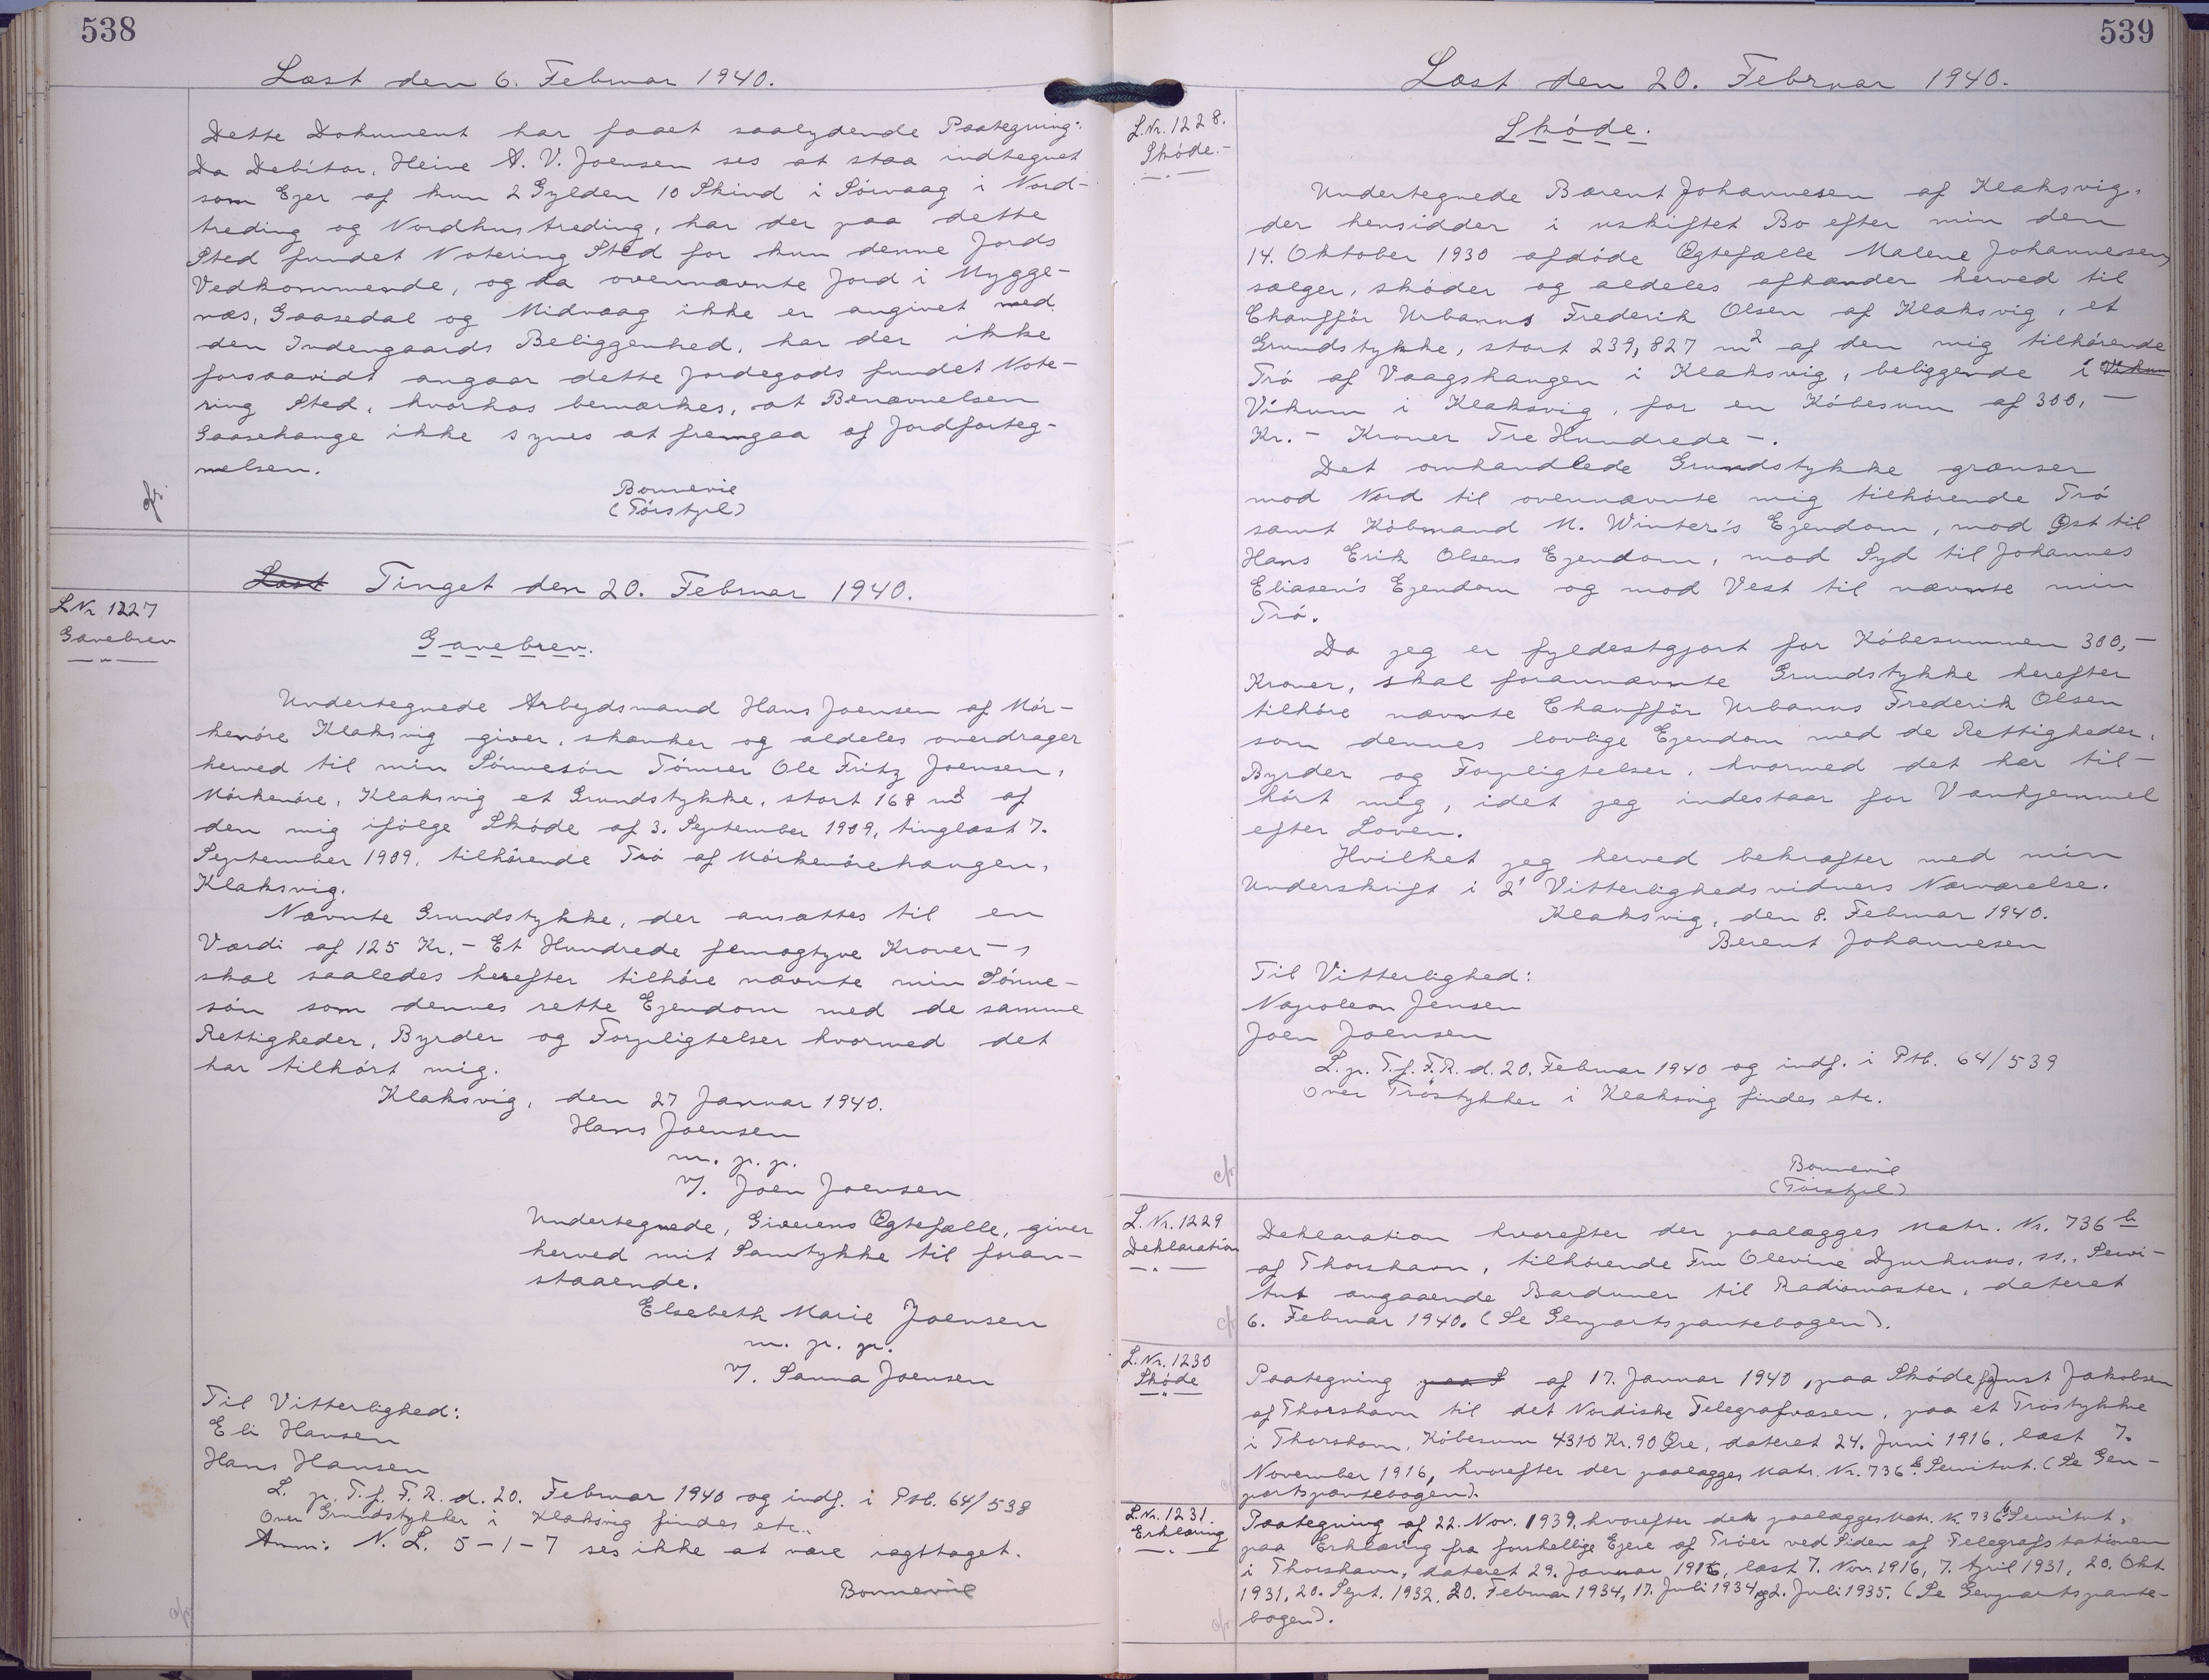 538
Læst den 6. Februar 1940.
Dette Dokument har faaet saalydende Paategning:
Da Debitor, Heine A. V. Joensen ses at staa indtegnet
som Ejer af kun 2 Gylden 10 Skind i Sörvaag i Nord-
treding og Nordhustreding, har der paa dette
Sted fundet Notering Sted for kun denne Jords
Vedkommende, og da ovennævnte Jord i Mygge-
næs, Gaasedal og Midvaag ikke er angivet med
den Indengaards Beliggenhed, har der ikke
forsaavidt angaar dette Jordegods fundet Note-
ring Sted, hvorhos bemærkes, at Benævnelsen
Gaasehauge ikke synes at fremgaa af Jordforteg-
nelsen.
Bonnevie
(Tórstjil)
cfr.
Læst Tinget den 20. Februar 1940.
L Nr 1227
Gavebrev
Gavebrev.
Undertegnede Arbejdsmand Hans Joensen af Mör-
kenóre Klaksvig giver, skænker og aldeles overdrager
herved til min Sönnesón Tómrer Ole Fritz Joensen,
Mörkenóre, Klaksvig et Grundstykke, stort 168 m2 af
den mig ifölge Skóde af 3. September 1909, tinglæst 7.
September 1909, tilhörende Tró af Mörkenórehaugen,
Klaksvig.
Nævnte Grundstykke, der ansættes til en
Værdi af 125 Kr. – Et Hundrede femogtyve Kroner –,
skal saaledes herefter tilhóre nævnte min Sónne-
són som dennes rette Ejendom med de samme
Rettigheder, Byrder og Forpligtelser hvormed det
har tilhórt mig.
Klaksvig, den 27 Januar 1940.
Hans Joensen
m. p. p.
v/. Joen Joensen
Undertegnede, Giverens Ægtefælle, giver
herved mit Samtykke til foran-
staaende.
Elsebeth Marie Joensen
m. p. p.
v/. Sanna Joensen
Til Vitterlighed:
Eli Hansen
Hans Hansen
L. p. T. f. F. R. d. 20. Februar 1940 og indf. i Ptb. 64/538
Over Grundstykker i Klaksvig findes etc.
Anm: N. L. 5-1-7 ses ikke at være iagttaget.
Bonnevie
cfr.
539
Læst den 20. Februar 1940.
L. Nr. 1228.
Skóde.-
Skóde.
Undertegnede Barent Johannesen af Klaksvig,
der hensidder i uskiftet Bo efter min den
14. Oktober 1930 afdóde Ægtefælle Malene Johannesen,
sælger, skóder og aldeles afhænder herved til
Chaufför Urbanus Frederik Olsen af Klaksvig, et
Grundstykke, stort 239,827 m2 af den mig tilhórende
Tró af Vaagshaugen i Klaksvig, beliggende i Vikum
Víkum i Klaksvig, for en Kóbesum af 300,-
Kr. – Kroner Tre Hundrede –.
Det omhandlede Grundstykke grænser
mod Nord til ovennævnte mig tilhórende Tró
samt Kóbmand M. Winter's Ejendom, mod Øst til
Hans Erik Olsens Ejendom, mod Syd til Johannes
Eliasen's Ejendom og mod Vest til nævnte min
Tró.
Da jeg er fyldestgjort for Kóbesummen 300,-
Kroner, skal forannævnte Grundstykke herefter
tilhóre nævnte Chaufför Urbanus Frederik Olsen
som dennes lovlige Ejendom med de Rettigheder,
Byrder og Forpligtelser, hvormed det har til-
hórt mig, idet jeg indestaar for Vanhjemmel
efter Loven.
Hvilket jeg herved bekræfter med min
Underskrift i 2' Vitterlighedsvidners Nærværelse.
Klaksvig, den 8. Februar 1940.
Berent Johannesen
Til Vitterlighed:
Napoleon Jensen
Joen Joensen
L. p. T. f. F. R. d. 20. Februar 1940 og indf. i Ptb. 64/539
over Tröstykker i Klaksvig findes etc.
Bonnevie
(Tórstjil)
cfr.
L. Nr. 1229
Deklaration
Deklaration hvorefter der paalægges Matr. Nr. 736 b
af Thorshavn, tilhórende Fru Olevine Djurhuus, ss., Servi-
tut angaaende Barduner til Radiomaster, dateret
6. Februar 1940. (Se Genpartspantebogen).
cfr.
L. Nr. 1230
Skóde
Paategning paa S af 17. Januar 1940, paa Skóde fra Just Jakobsen
af Thorshavn til det Nordiske Telegrafvæsen, paa et Tróstykke
i Thorshavn, Kóbesum 4310 Kr. 90 Øre, dateret 24. Juni 1916, læst 7.
November 1916, hvorefter der paalægges Matr. Nr. 736 b Servitut. (Se Gen-
partspantebogen).
L. Nr. 1231.
Erklæring
Paategning af 22. Nov. 1939, hvorefter der paalægges Matr. Nr. 736 b Servitut,
paa Erklæring fra forskellige Ejere af Tröer ved Siden af Telegrafstationen
i Thorshavn, dateret 29. Januar 1916, læst 7. Nov. 1916, 7. April 1931, 20. Okt
1931, 20. Sept. 1932, 20. Februar 1934, 17. Juli 1934 og 2. Juli 1935. (Se Genpartspante-
bogen).
cfr.